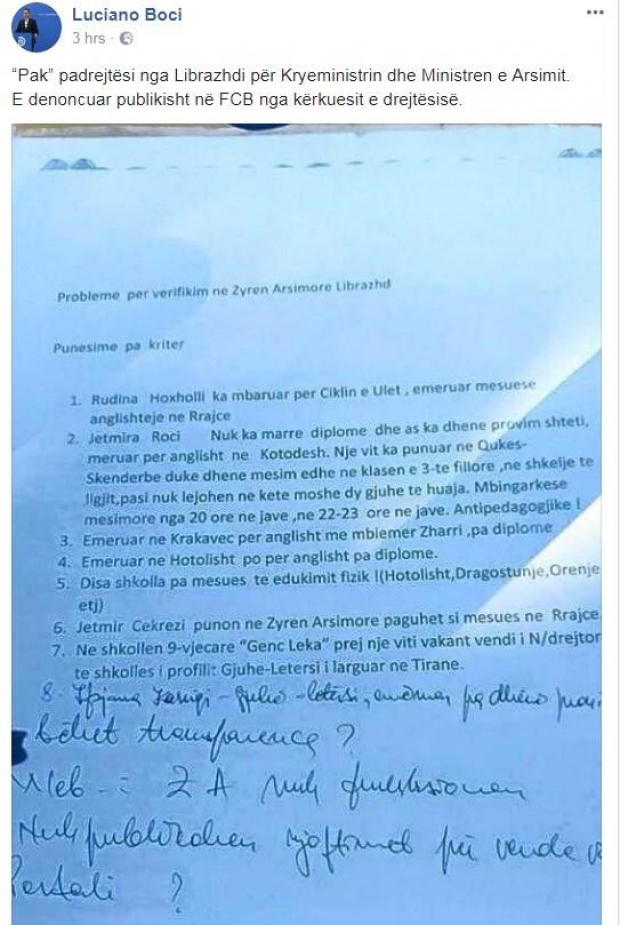 Luciano Boci
3 hrs ·
“Pak” padrejtësi nga Librazhdi për Kryeministrin dhe Ministren e Arsimit.
E denoncuar publikisht në FCB nga kërkuesit e drejtësisë.
Probleme per verifikim ne Zyren Arsimore Librazhd
Punesime pa kriter
1. Rudina Hoxholli ka mbaruar per Ciklin e Ulet , emeruar mesuese
anglishteje ne Rrajce
2. Jetmira Roci Nuk ka marre diplome dhe as ka dhene provim shteti,
meruar per anglisht ne Kotodesh. Nje vit ka punuar ne Qukes-
Skenderbe duke dhene mesim edhe ne klasen e 3-te fillore ,ne shkelje te
ligjit,pasi nuk lejohen ne kete moshe dy gjuhe te huaja. Mbingarkese
mesimore nga 20 ore ne jave ,ne 22-23 ore ne jave. Antipedagogjike !
3. Emeruar ne Krakavec per anglisht me mbiemer Zharri ,pa diplome
4. Emeruar ne Hotolisht po per anglisht pa diplome.
5. Disa shkolla pa mesues te edukimit fizik !(Hotolisht,Dragostunje,Orenje
etj)
6. Jetmir Cekrezi punon ne Zyren Arsimore paguhet si mesues ne Rrajce
7. Ne shkollen 9-vjecare “Genc Leka” prej nje viti vakant vendi i N/drejtor
te shkolles i profilit Gjuhe-Letersi i larguar ne Tirane.
8- - gjuhë -letërsi, pa dhënë
bëhet transparencë ?
Web - : Z A nuk funksionon
Nuk publikohen njoftimet për vende
Portali ?